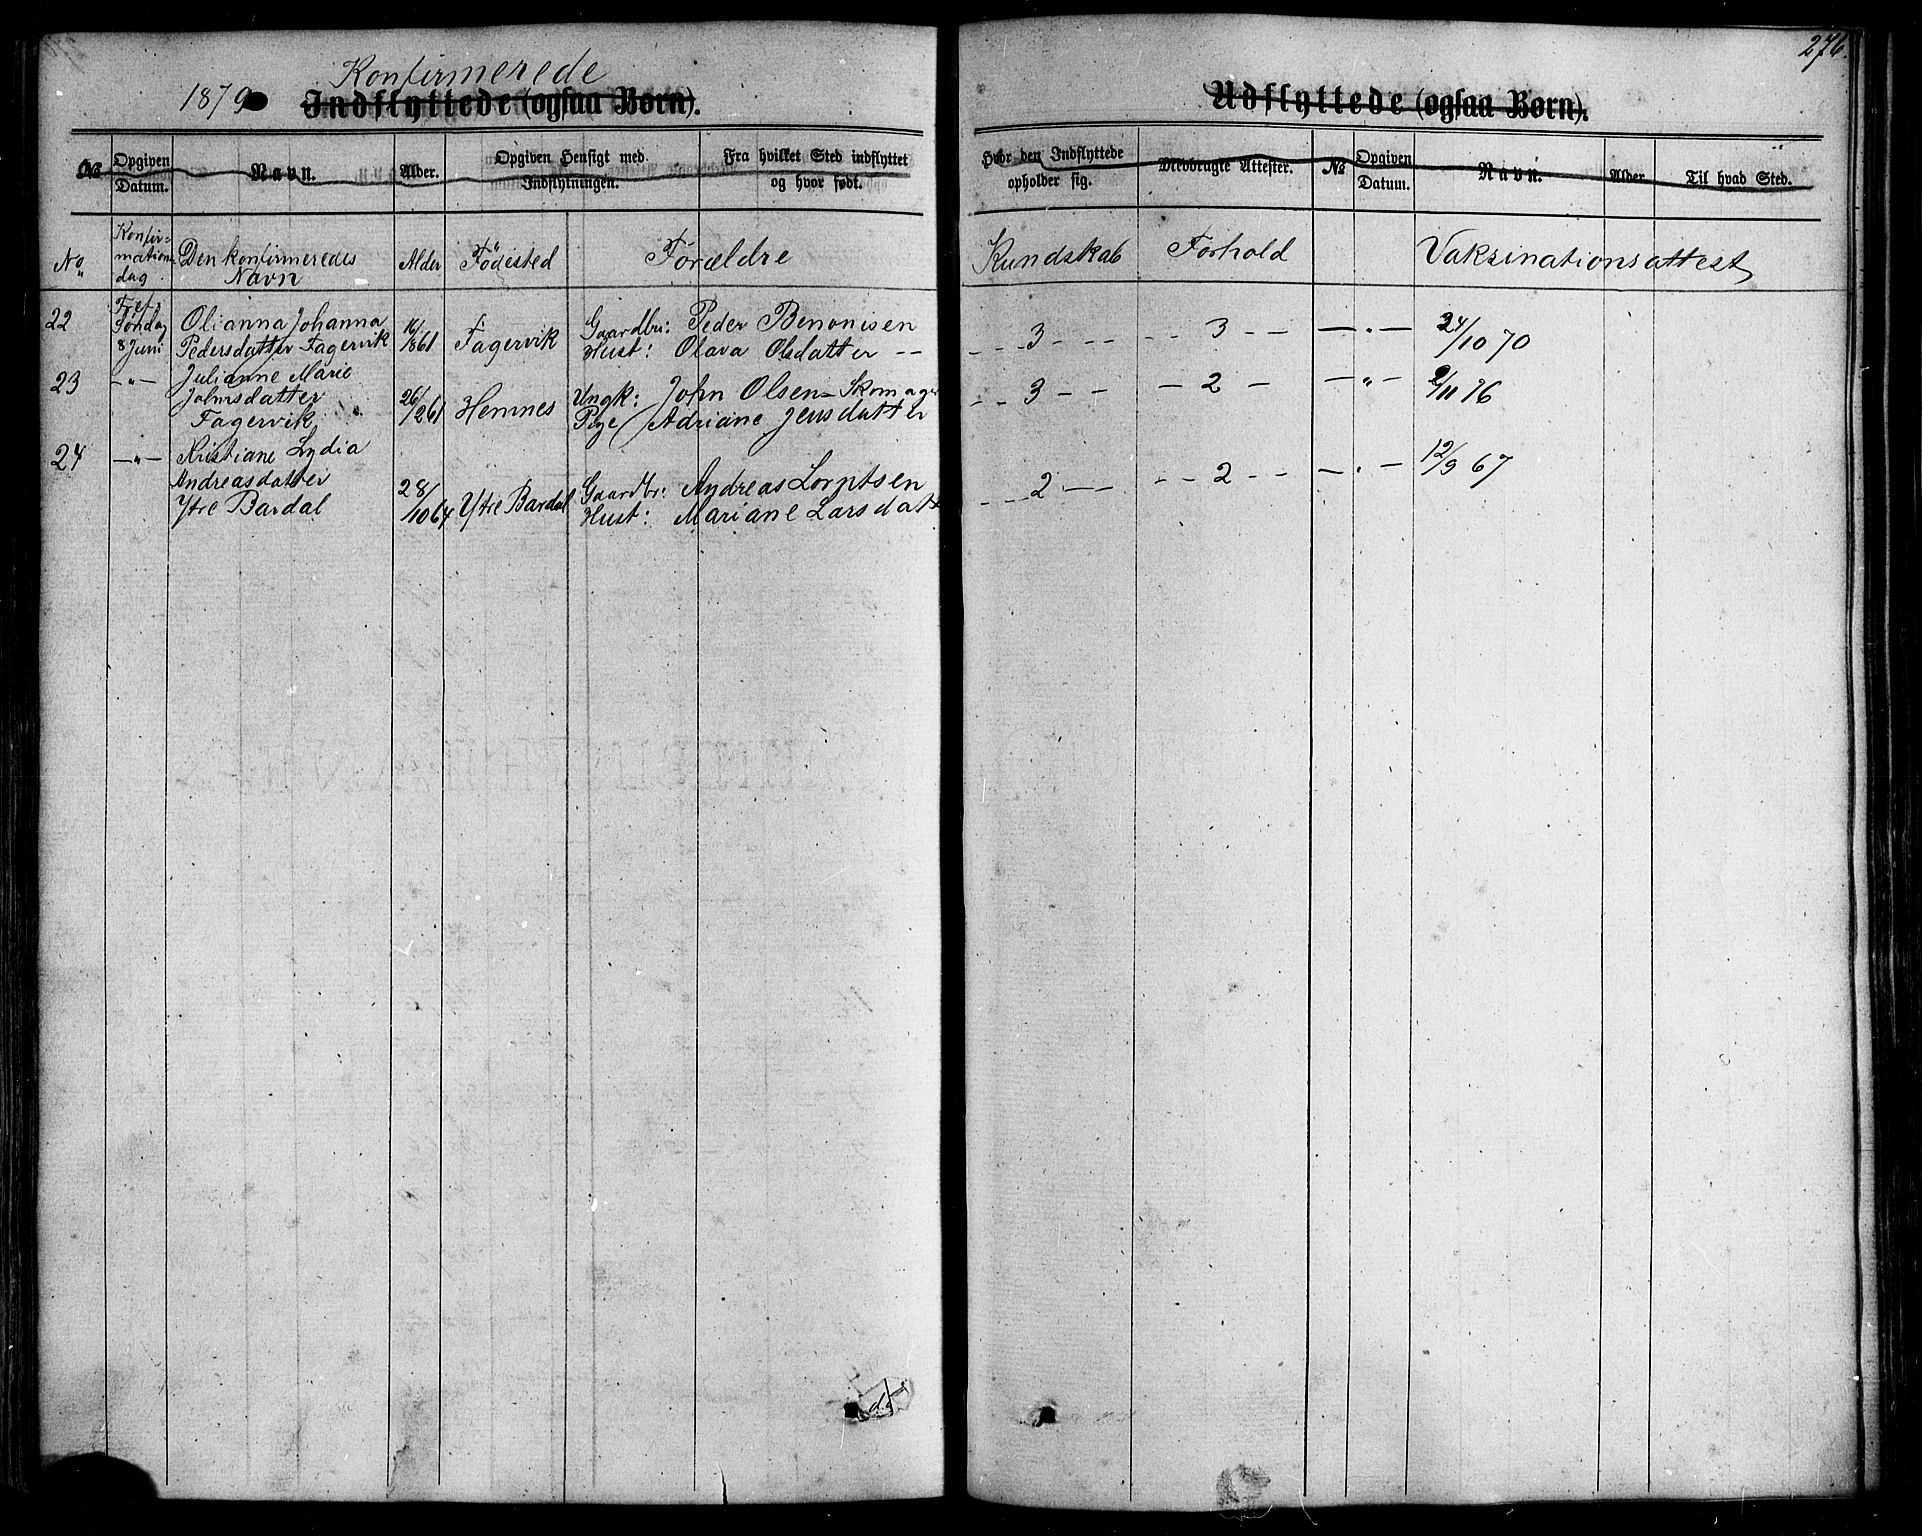 276.
1879 Konfirmerede
Indflyttede (ogsaa Børn).
Udflyttede (ogsaa Børn).
№ Opgiven Datum. Navn. Alder. Opgiven Hensigt med Indflytningen. Fra hvilket Sted indflyttet og hvor født.
Hvor den Indflyttede opholder sig. Medbragte Attester. № Opgiven Datum. Navn. Alder. Til hvad Sted.
No Konfirmationsdag. Den konfirmeredes Navn Alder Födested Forældre
Kundskab Forhold Vaksinationsattest
22 Tref. Söndag Olianna Johanna 16/ Fagervik Gaardbr: Peder Benonisen
8 Juni Pedersdatter Fagervik 1861 Hust: Olava Olsdatter --
- - 3 - - - - 3 - - - " - 24/10 70
23 -"- Julianne Marie
Johnsdatter 26/ Hemnes Ungk: John Olsen - Skomager
Fagervik /261 Pige Adriane Jensdatter
- - 3 - - - 2 - - " - 2/11 76
24 -"- Kristiane Lydia
Andreasdatter 28/ Ytre Bardal Gaardbr: Andreas Lorntsen
Ytre Bardal /10 64 Hust: Mariane Larsdatt
- - 2 - - - - 2 - - - " - 12/9 67